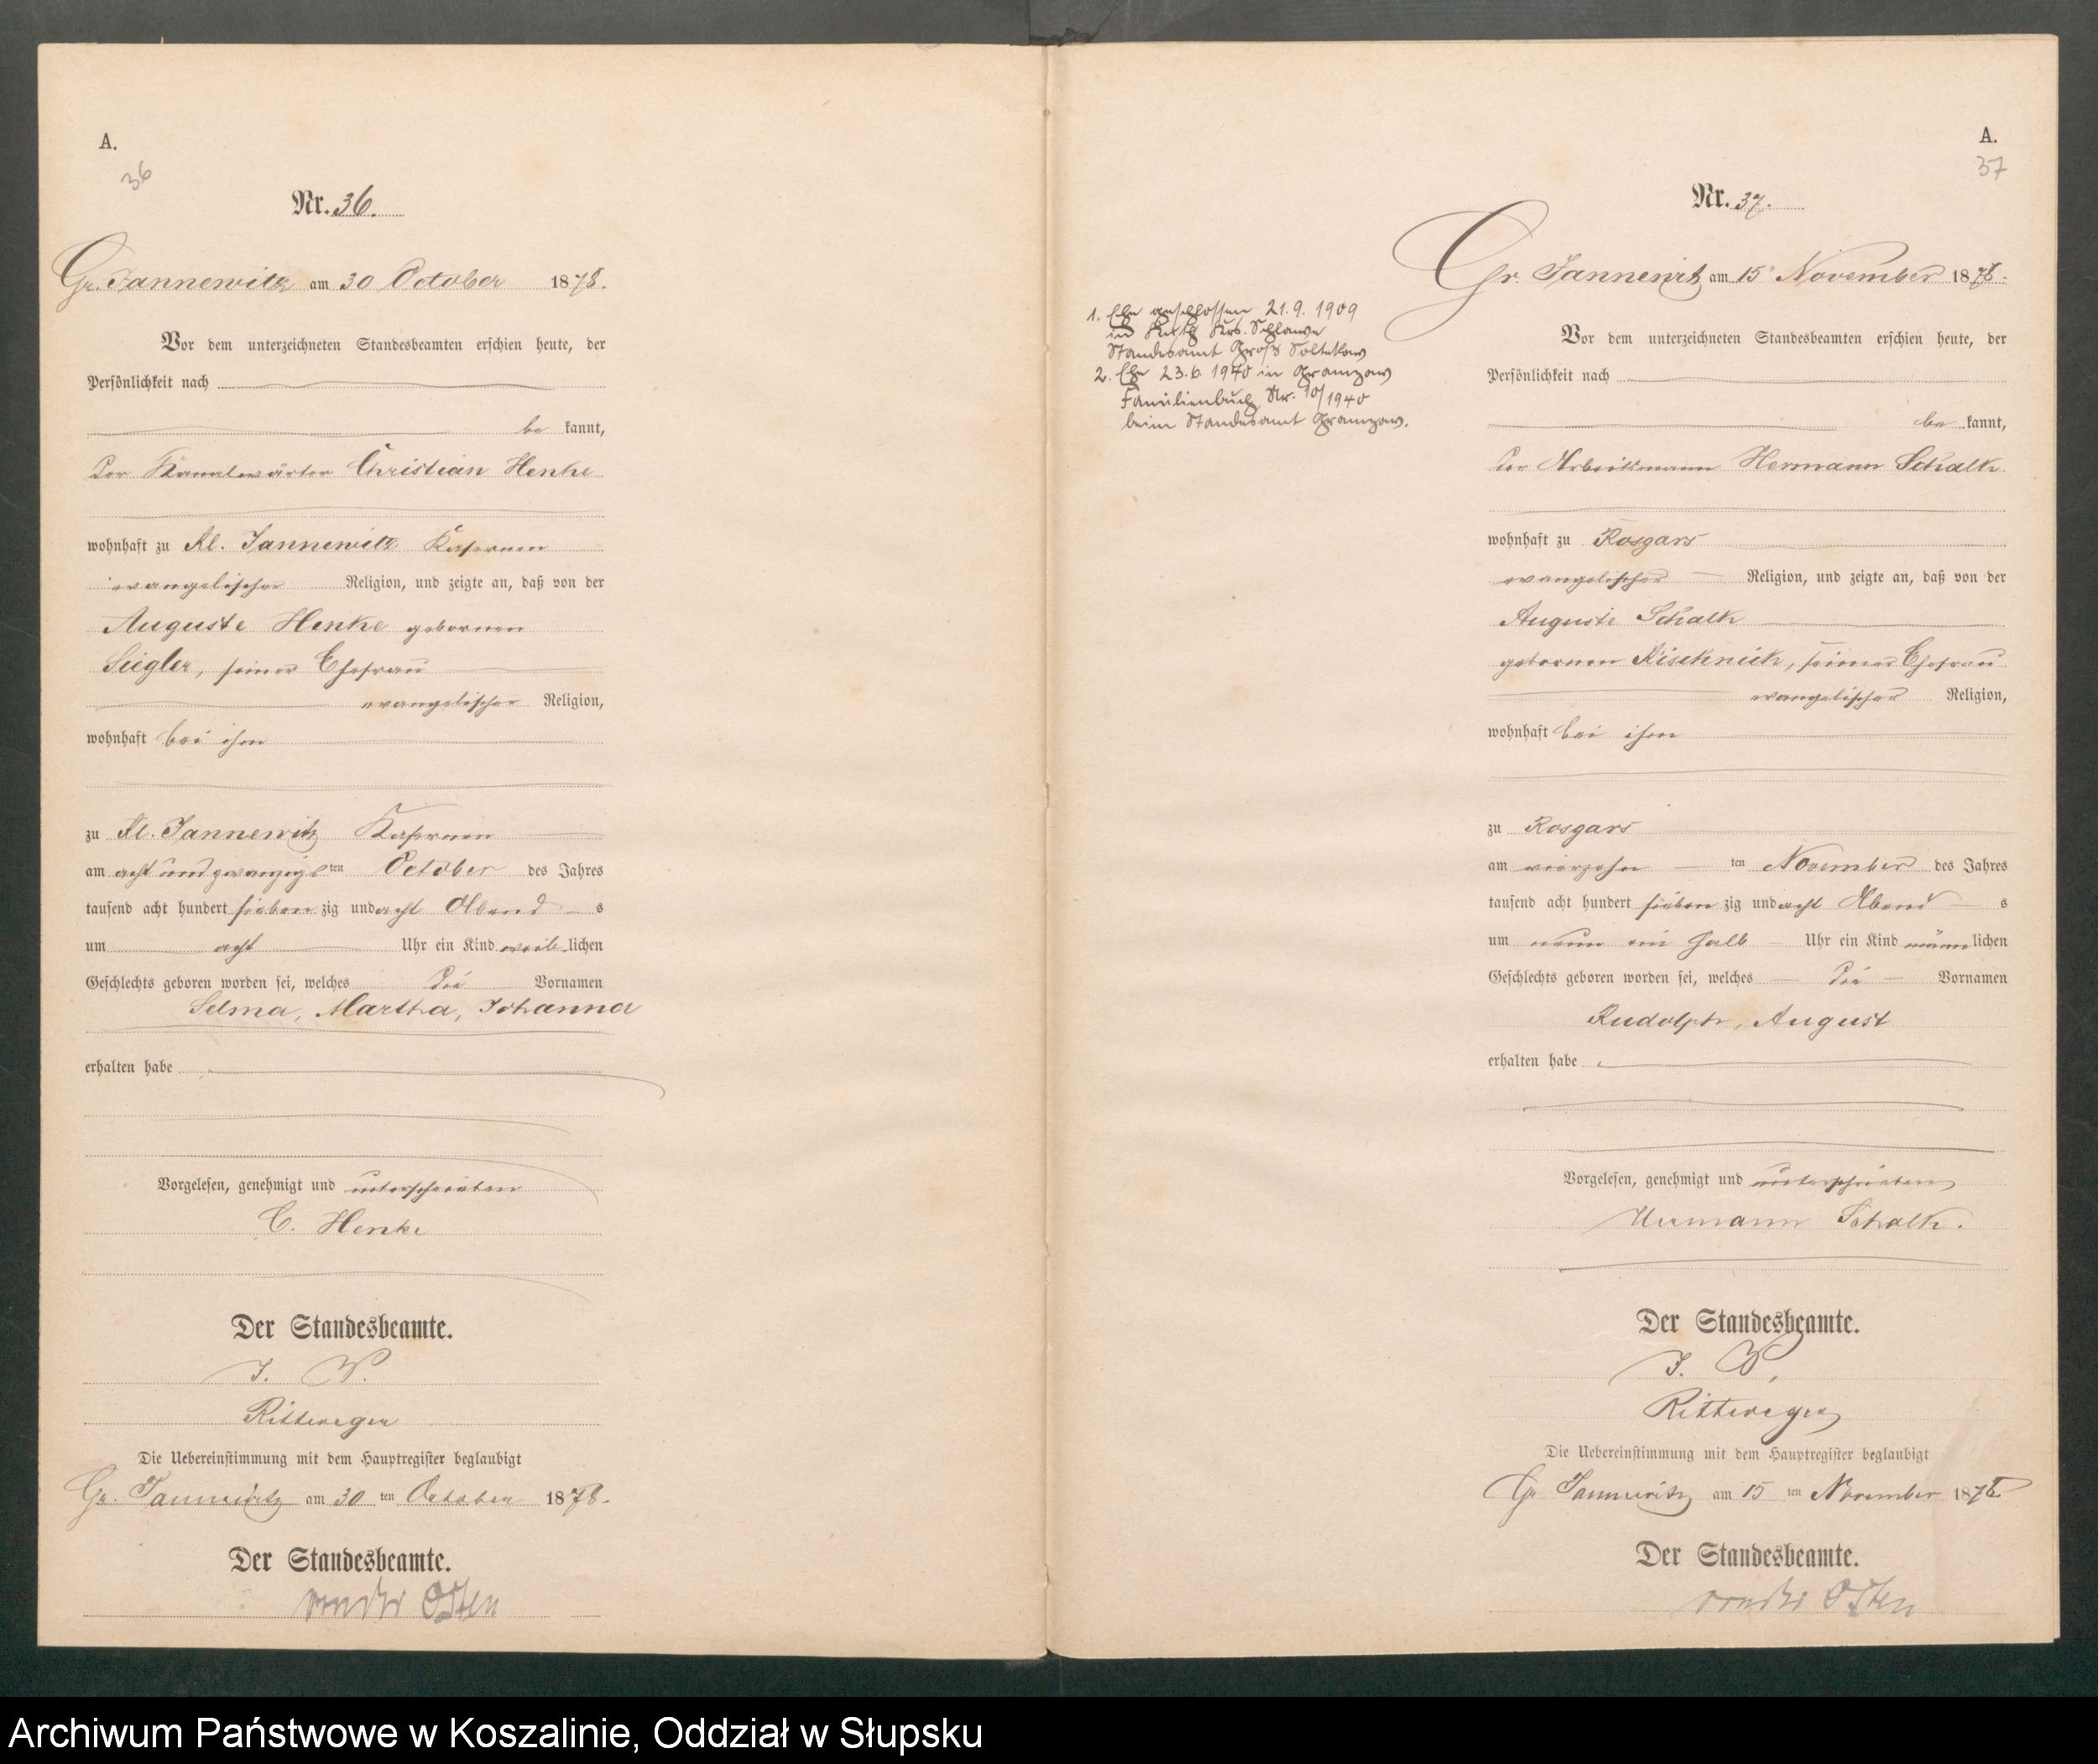 A.
36
Nr. 36.
Gr. Jannewitz am 30 October 1878.
Vor dem unterzeichneten Standesbeamten erschien heute, der
Persönlichkeit nach
be kannt,
der Kanalwärter Christian Henke
wohnhaft zu Kl. Jannewitz Kasernen
evangelischer Religion, und zeigte an, daß von der
Auguste Henke gebornen
Siegler, seiner Ehefrau
evangelischer Religion,
wohnhaft bei ihm
zu Kl. Jannewitz Kasernen
am acht und zwanzigsten October des Jahres
tausend acht hundert sieben zig und acht Abend s
um acht Uhr ein Kind weib lichen
Geschlechts geboren worden sei, welches die Vornamen
Selma, Martha, Johanna
erhalten habe
Vorgelesen, genehmigt und unterschrieben
C. Henke
Der Standesbeamte.
J. V.
Rittweger
Die Uebereinstimmung mit dem Hauptregister beglaubigt
Gr. Jannewitz am 30 ten October 1878.
Der Standesbeamte.
von der Osten
A.
37
Nr. 37.
Gr. Jannewitz am 15 November 1878.
1. Ehe geschlossen 21.9.1909
in Krs. Schlawe
Standesamt Groß Soltikow
2. Ehe 23.6.1940 in Gramzow
Familienbuch Nr. 10/1940
beim Standesamt Gramzow.
Vor dem unterzeichneten Standesbeamten erschien heute, der
Persönlichkeit nach
be kannt,
der Arbeitsmann Hermann Schalk
wohnhaft zu Rosgars
evangelischer Religion, und zeigte an, daß von der
Auguste Schalk
gebornen Kischnick, seiner Ehefrau
evangelischer Religion,
wohnhaft bei ihm
zu Rosgars
am vierzehn ten November des Jahres
tausend acht hundert sieben zig und acht Abend s
um neun ein halb Uhr ein Kind männ lichen
Geschlechts geboren worden sei, welches die Vornamen
Rudolph, August
erhalten habe
Vorgelesen, genehmigt und unterschrieben
Hermann Schalk.
Der Standesbeamte.
J. V.
Rittweger
Die Uebereinstimmung mit dem Hauptregister beglaubigt
Gr Jannewitz am 15 ten November 1878
Der Standesbeamte.
von der Osten
Archiwum Państwowe w Koszalinie, Oddział w Słupsku